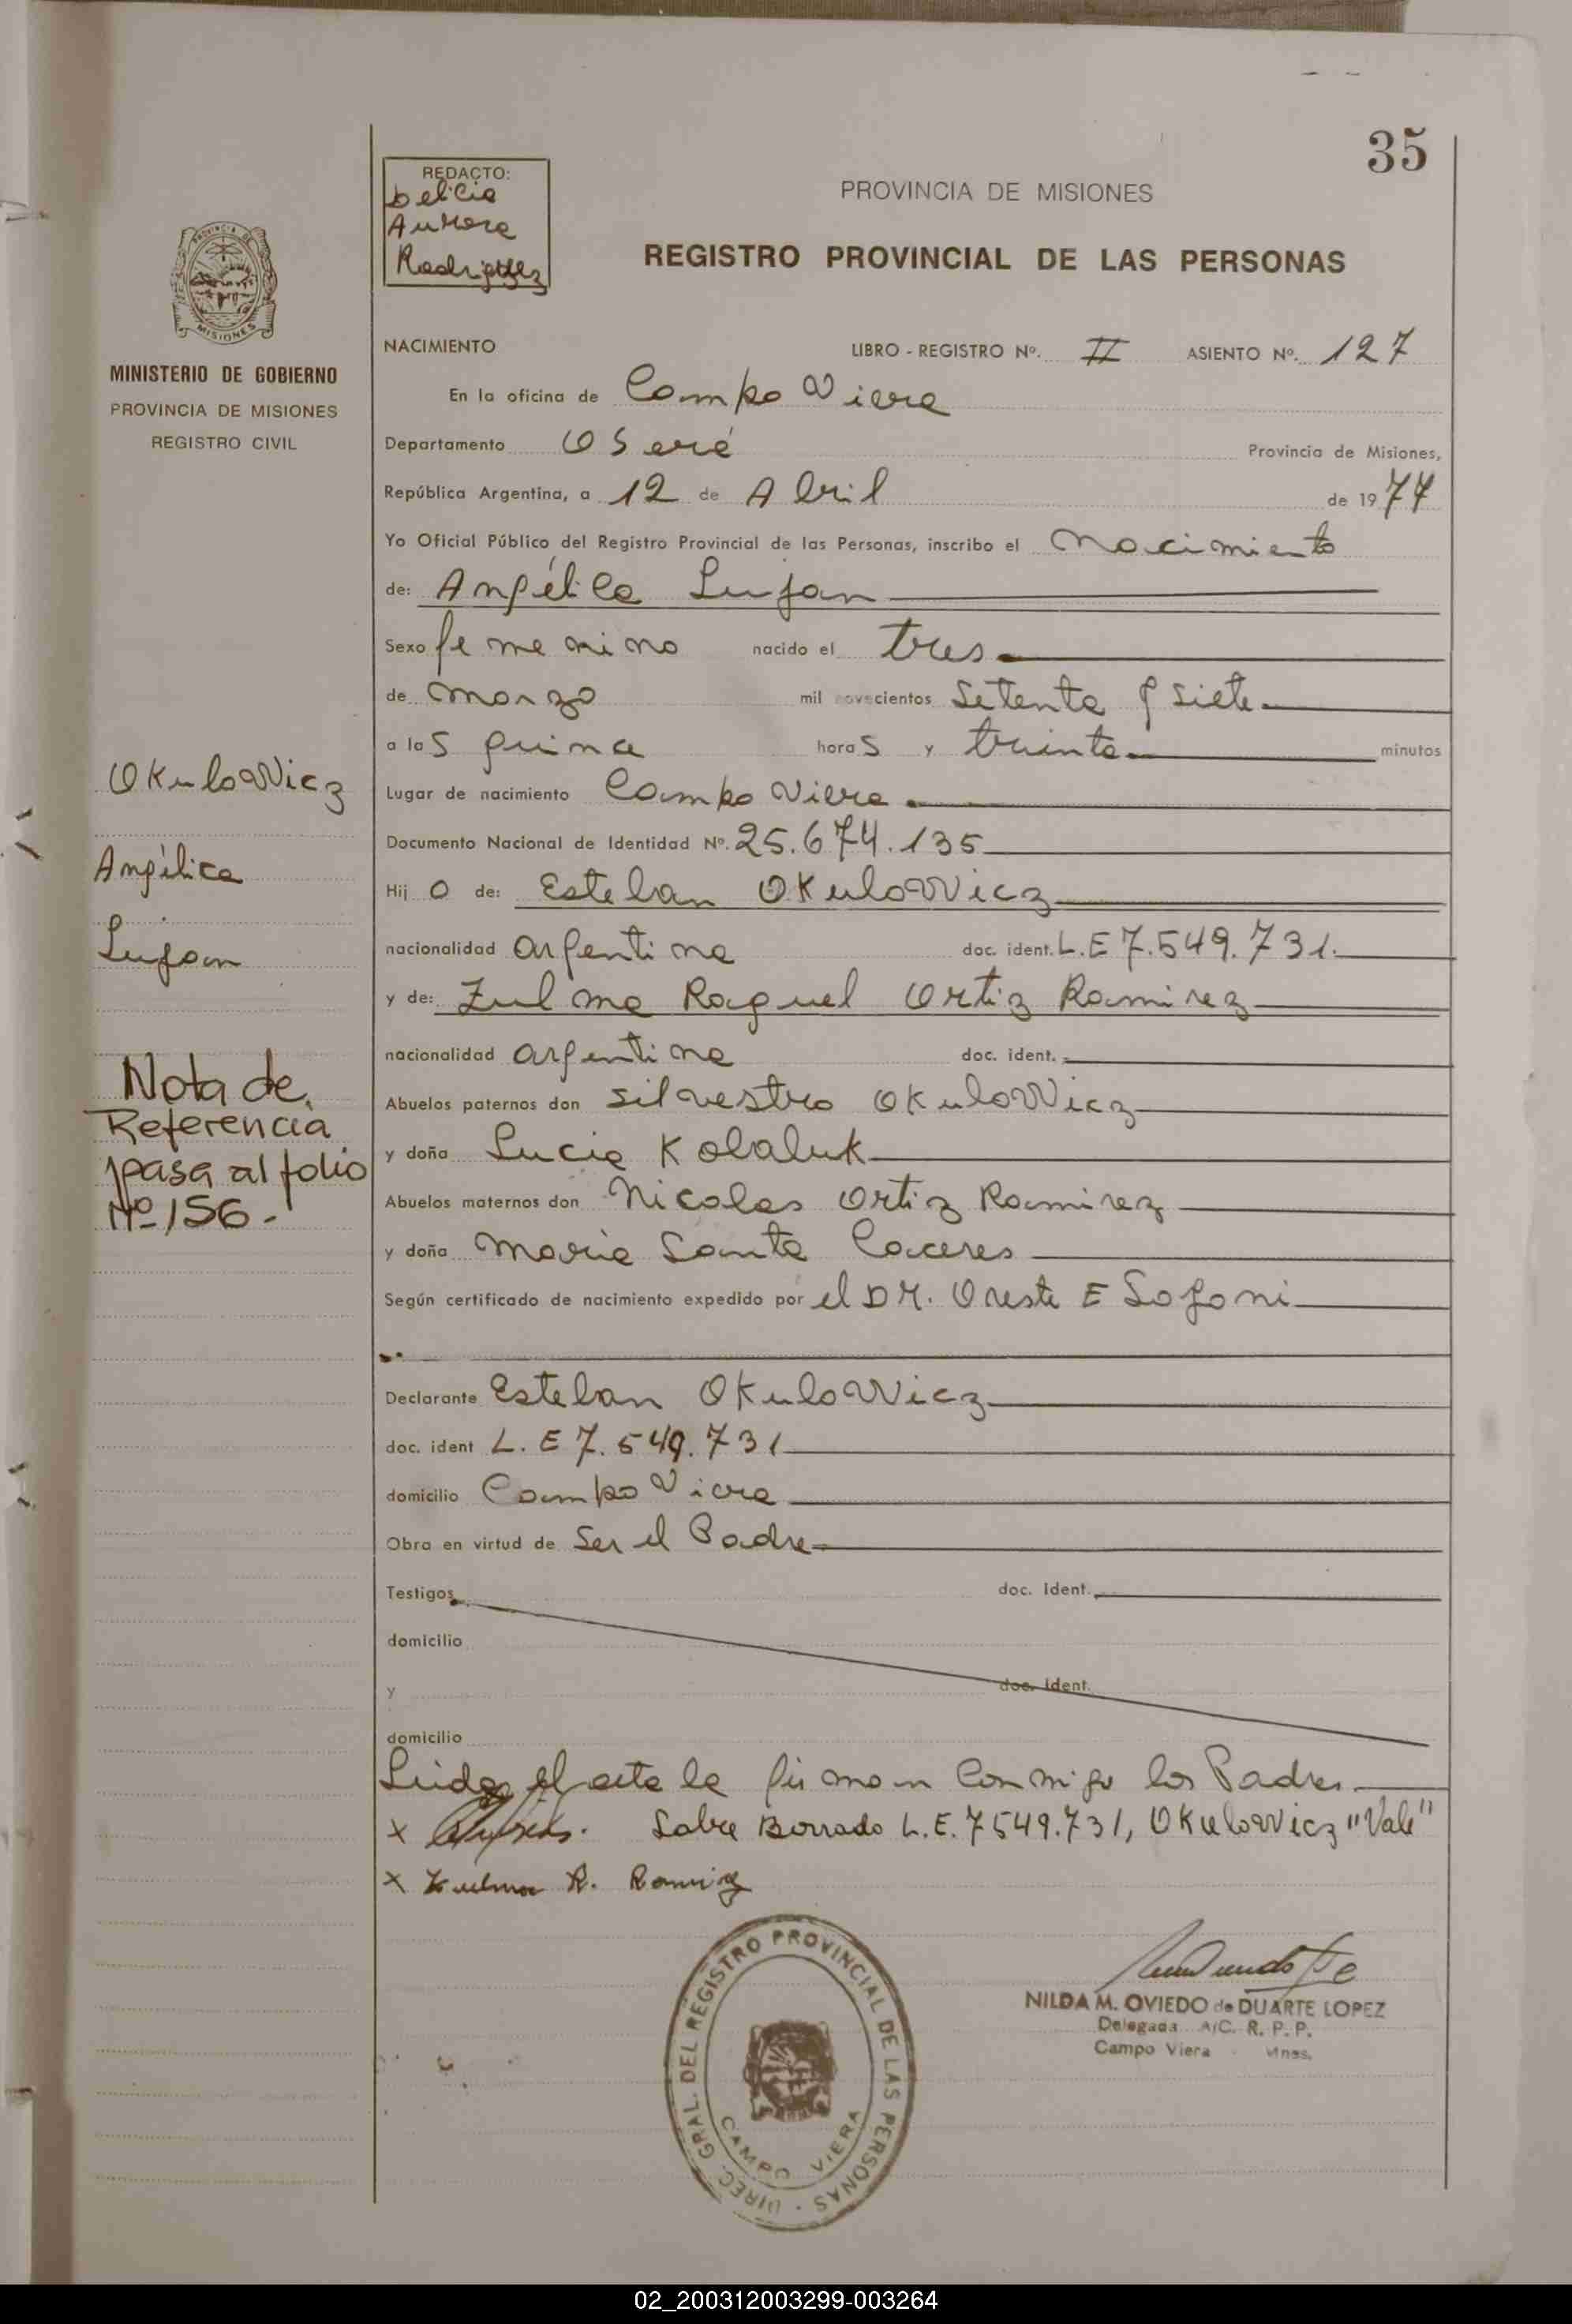 35
REDACTO:
Delicia
Aurora
Rodriguez
PROVINCIA DE MISIONES
REGISTRO PROVINCIAL DE LAS PERSONAS
PROVINCIA DE MISIONES
MINISTERIO DE GOBIERNO
PROVINCIA DE MISIONES
REGISTRO CIVIL
Okulowicz
Angélica
Lujan
Nota de
Referencia
pasa al folio
Nº 156.-
NACIMIENTO LIBRO - REGISTRO Nº. II ASIENTO Nº. 127
En la oficina de Campo Viera
Departamento Oberá Provincia de Misiones,
República Argentina, a 12 de Abril de 1977
Yo Oficial Público del Registro Provincial de las Personas, inscribo el Nacimiento
de: Angélica Lujan
Sexo femenino nacido el tres
de marzo mil novecientos setenta y siete
a las quince horas y treinta minutos
Lugar de nacimiento Campo Viera
Documento Nacional de Identidad Nº. 25.674.135
Hij o de: Esteban Okulowicz
nacionalidad argentina doc. ident. L.E 7.549.731.
y de: Zulma Raquel Ortiz Ramirez
nacionalidad argentina doc. ident.
Abuelos paternos don Silvestro Okulowicz
y doña Lucia Kobaluk
Abuelos maternos don Nicolas Ortiz Ramirez
y doña Maria Santa Caceres
Según certificado de nacimiento expedido por el DR. Oreste E
Declarante Esteban Okulowicz
doc. ident L. E 7. 549. 731
domicilio Campo Viera
Obra en virtud de Ser el Padre
Testigos doc. ident.
domicilio
y doc. ident.
domicilio
Leida el acta la firman conmigo los Padres
x Sobre Borrado L.E. 7549.731, Okulowicz "Vale"
x Zulma R. Ramirez
DIREC. GRAL. DEL REGISTRO PROVINCIAL DE LAS PERSONAS
CAMPO VIERA
NILDA M. OVIEDO de DUARTE LOPEZ
Delegada A/C. R. P. P.
Campo Viera - Mnes.
02_200312003299-003264